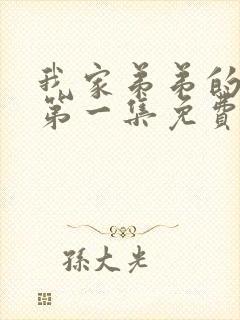 我家弟弟的
第一集免費
孫大光